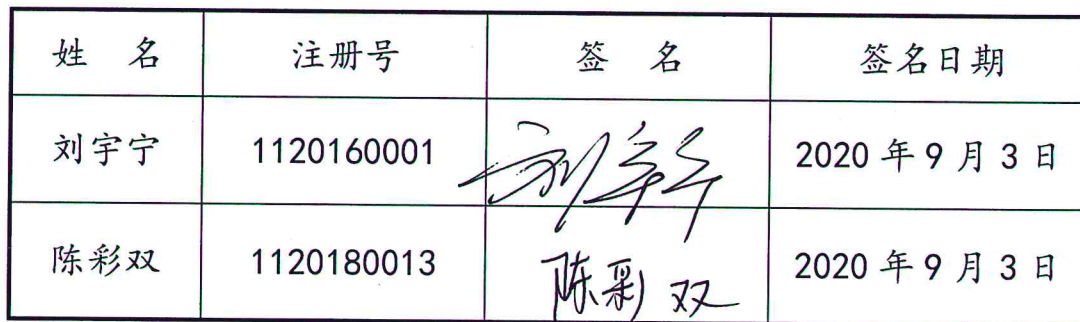 姓 名 注册号 签 名 签名日期
刘宇宁 1120160001 刘宇宁 2020年9月3日
陈彩双 1120180013 陈彩双 2020年9月3日